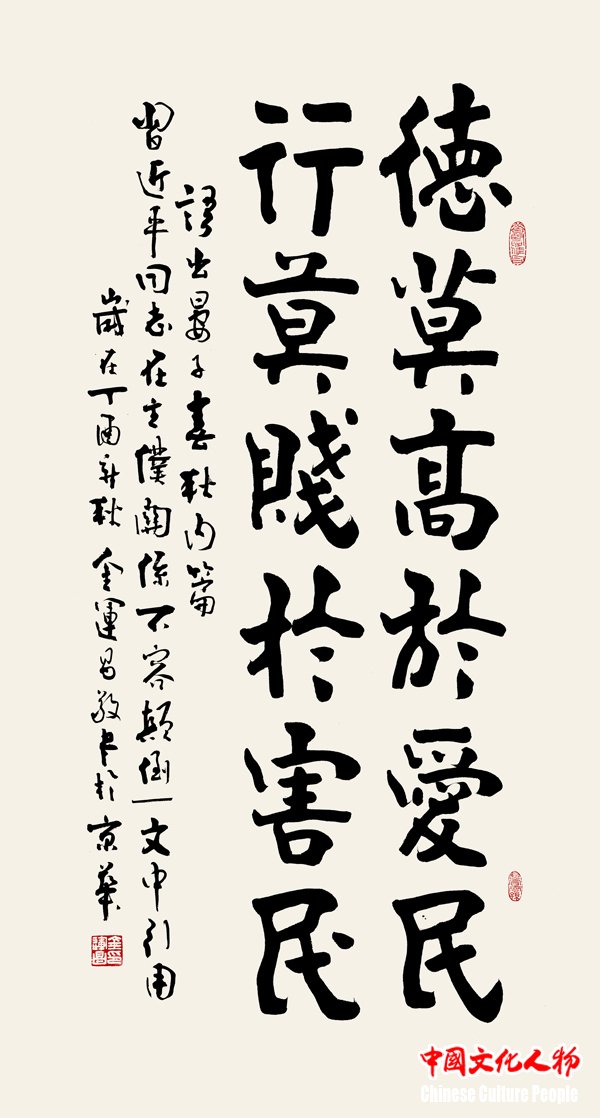 德莫高於愛民
行莫賤於害民
語出晏子春秋内篇
習近平同志在主僕關係不容顛倒一文中引用
歲在丁酉新秋 金運昌敬書於京華
中國文化人物
Chinese Culture People